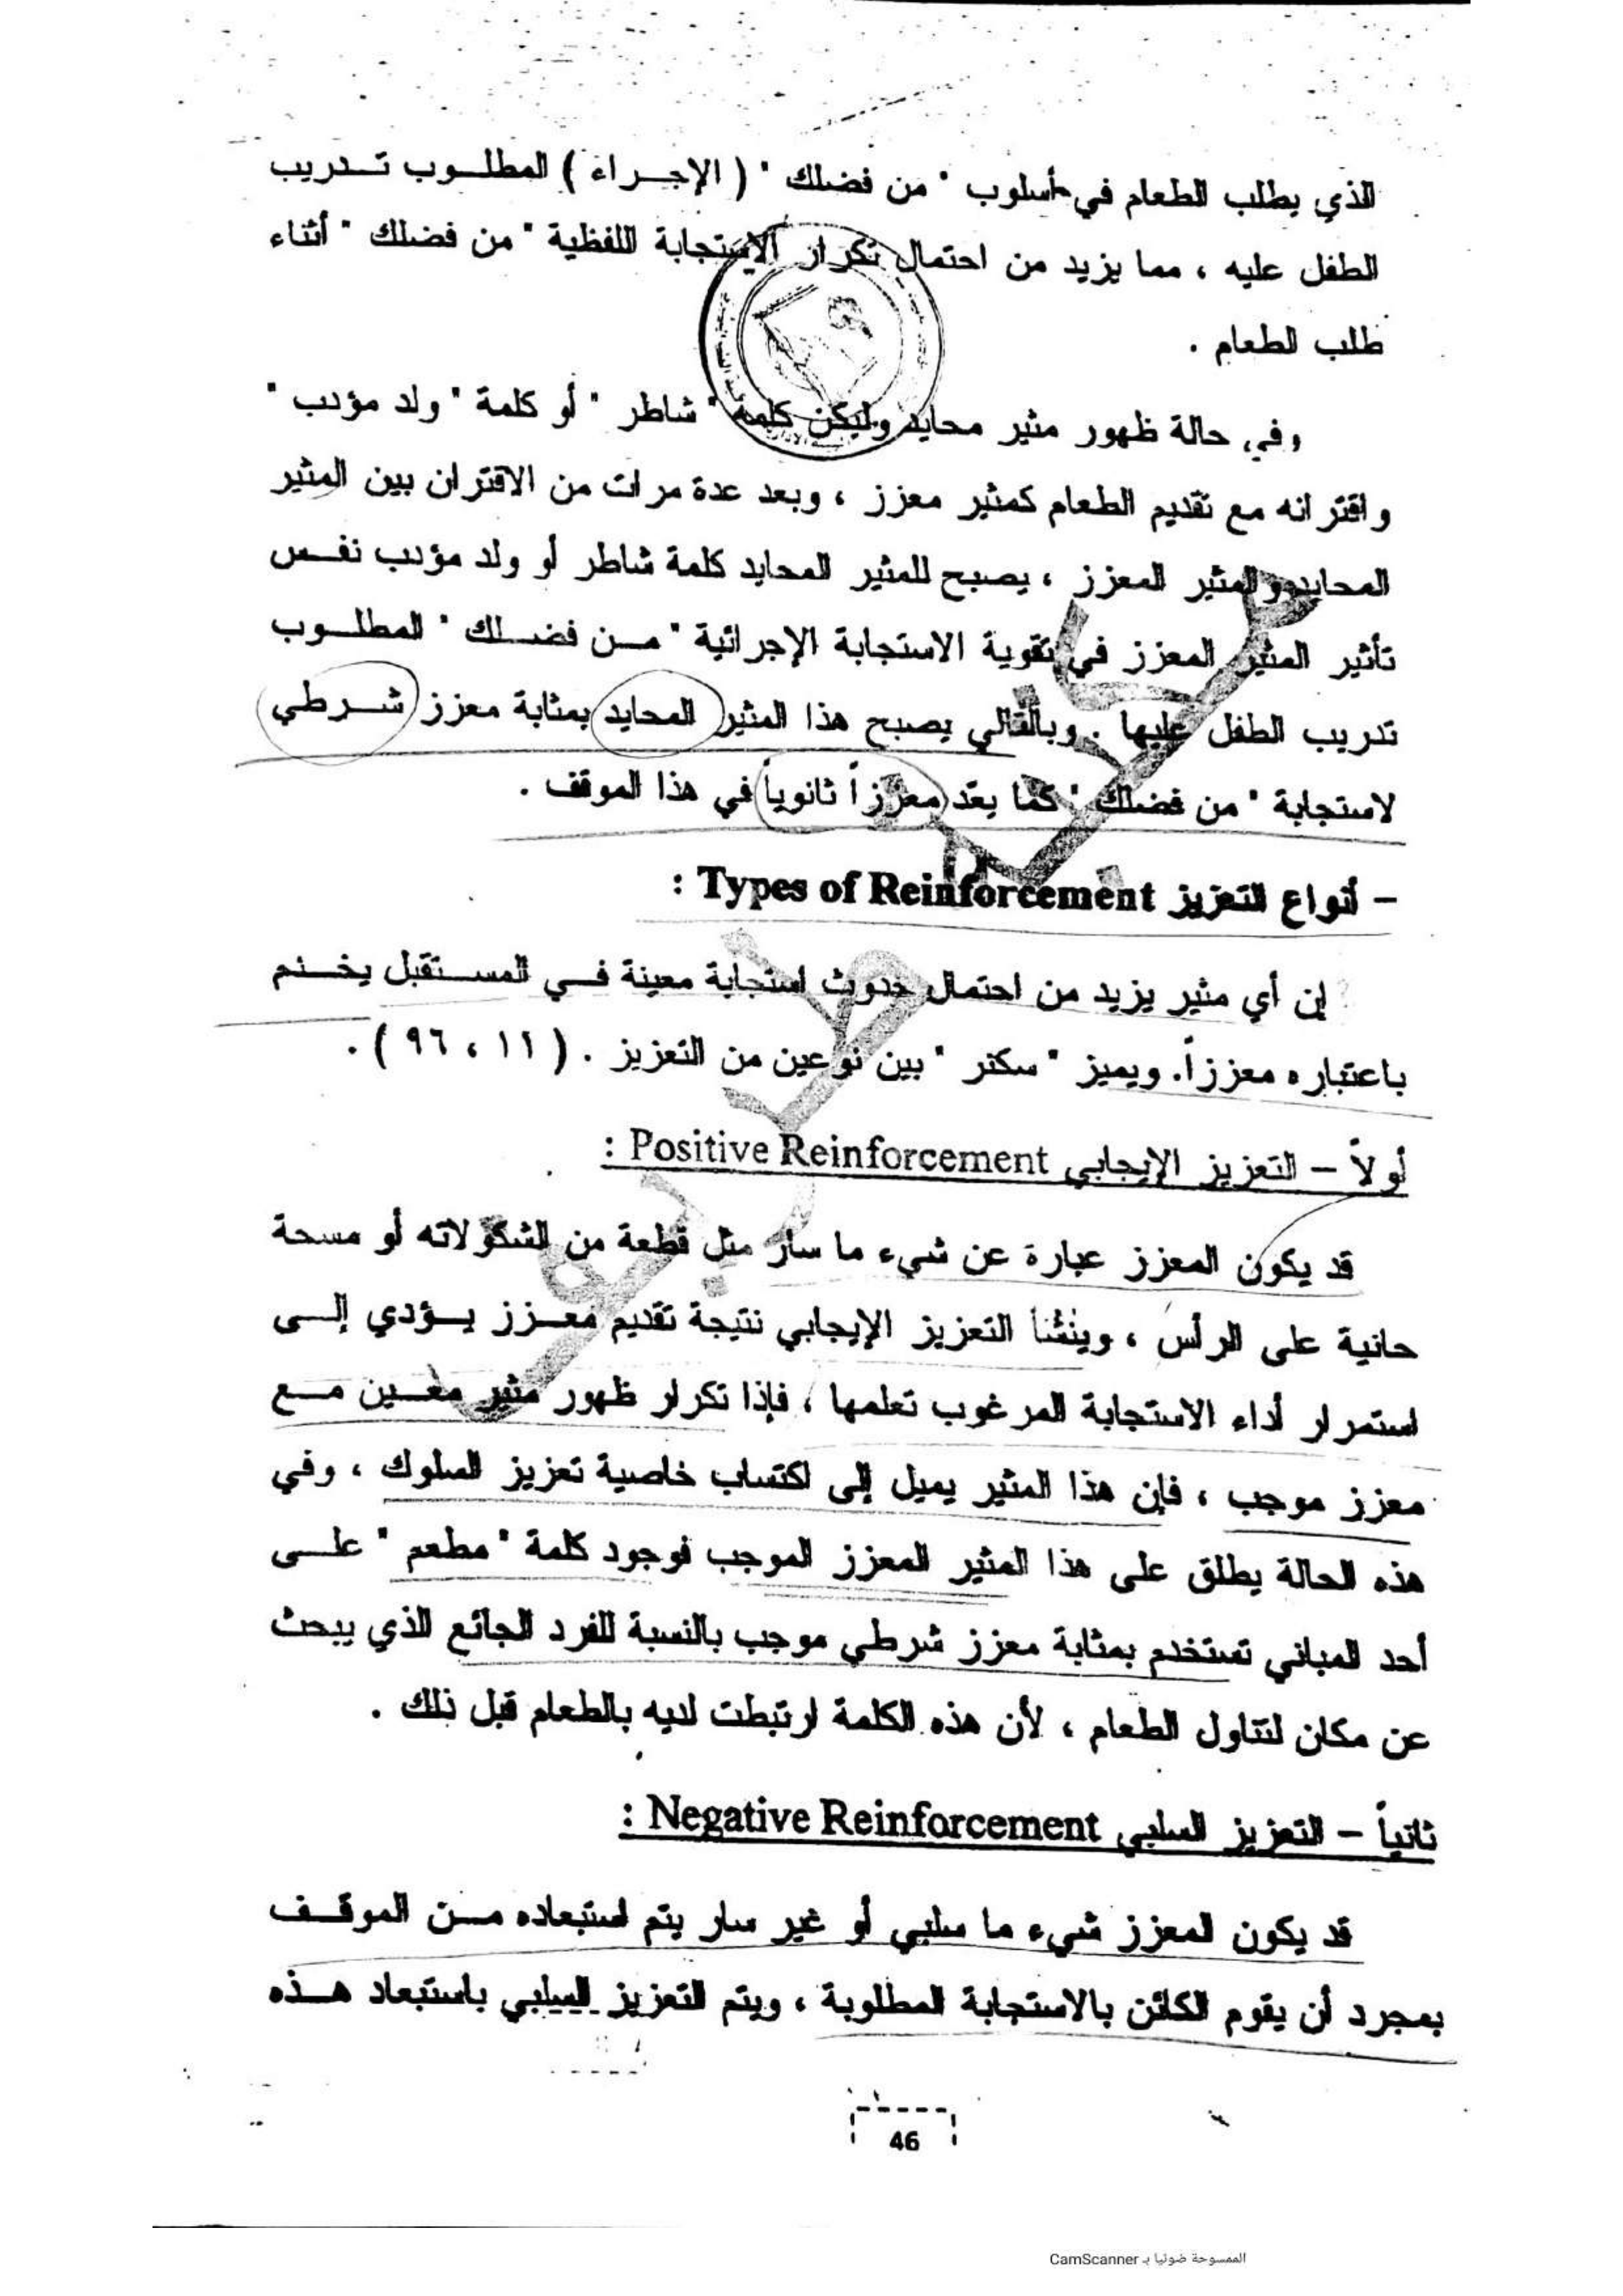 الذي يطلب الطعام في أسلوب " من فضلك " ( الإجـــراء ) المطلـــوب تـــدريب
الطفل عليه ، مما يزيد من احتمال تكرار الاستجابة اللفظية " من فضلك " أثناء
طلب الطعام .
وفي حالة ظهور مثير محايد وليكن كلمة " شاطر " أو كلمة " ولد مؤدب "
واقترانه مع تقديم الطعام كمثير معزز ، وبعد عدة مرات من الاقتران بين المثير
المحايد والمثير المعزز ، يصبح للمثير المحايد كلمة شاطر أو ولد مؤدب نفـــس
تأثير المثير المعزز في تقوية الاستجابة الإجرائية " مـــن فضـــلك " المطلـــوب
تدريب الطفل عليها . وبالتالي يصبح هذا المثير المحايد بمثابة معزز شـــرطي
لاستجابة " من فضلك " كما يعدّ معززاً ثانوياً في هذا الموقف .
– أنواع التعزيز Types of Reinforcement :
إن أي مثير يزيد من احتمال حدوث استجابة معينة فـــي المســـتقبل يخـــدم
باعتباره معززاً. ويميز " سكنر " بين نوعين من التعزيز . ( ١١ ، ٩٦ ) .
أولاً – التعزيز الإيجابي Positive Reinforcement :
قد يكون المعزز عبارة عن شيء ما سار مثل قطعة من الشكولاته أو مسحة
حانية على الرأس ، وينشأ التعزيز الإيجابي نتيجة تقديم معـــزز يـــؤدي إلـــى
استمرار أداء الاستجابة المرغوب تعلمها ، فإذا تكرار ظهور مثير معـــين مـــع
معزز موجب ، فإن هذا المثير يميل إلى اكتساب خاصية تعزيز السلوك ، وفي
هذه الحالة يطلق على هذا المثير المعزز الموجب فوجود كلمة " مطعم " علـــى
أحد المباني تستخدم بمثابة معزز شرطي موجب بالنسبة للفرد الجائع الذي يبحث
عن مكان لتناول الطعام ، لأن هذه الكلمة ارتبطت لديه بالطعام قبل ذلك .
ثانياً – التعزيز السلبي Negative Reinforcement :
قد يكون المعزز شيء ما سلبي أو غير سار يتم استبعاده مـــن الموقـــف
بمجرد أن يقوم الكائن بالاستجابة المطلوبة ، ويتم التعزيز السلبي باستبعاد هـــذه
46
الممسوحة ضوئيا بـ CamScanner